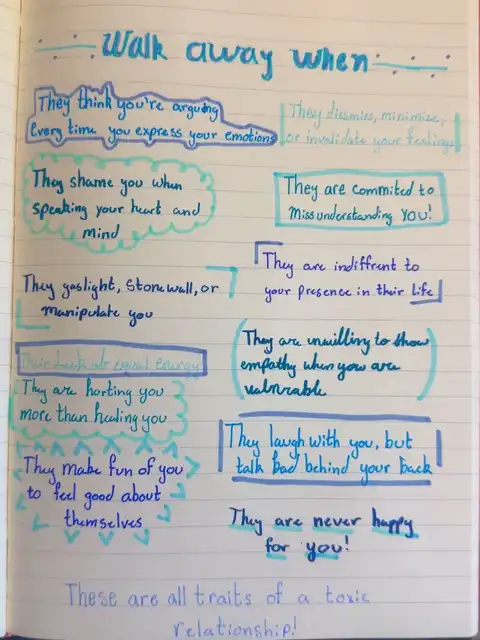 Walk away when
They think you're arguing
Every time you express your emotions
They dismiss, minimise,
or invalidate your feelings
They shame you when
speaking your heart and
mind
They are commited to
missunderstanding YOU!
They gaslight, stonewall, or
manipulate you
They are indiffrent to
your presence in their life
They are unwilling to show
empathy when you are
vulnrable
equal energy
They are horting you
more than healing you
They laugh with you, but
talk bad behind your back
They make fun of you
to feel good about
themselves
They are never happy
for you!
These are all traits of a toxic
relationship!